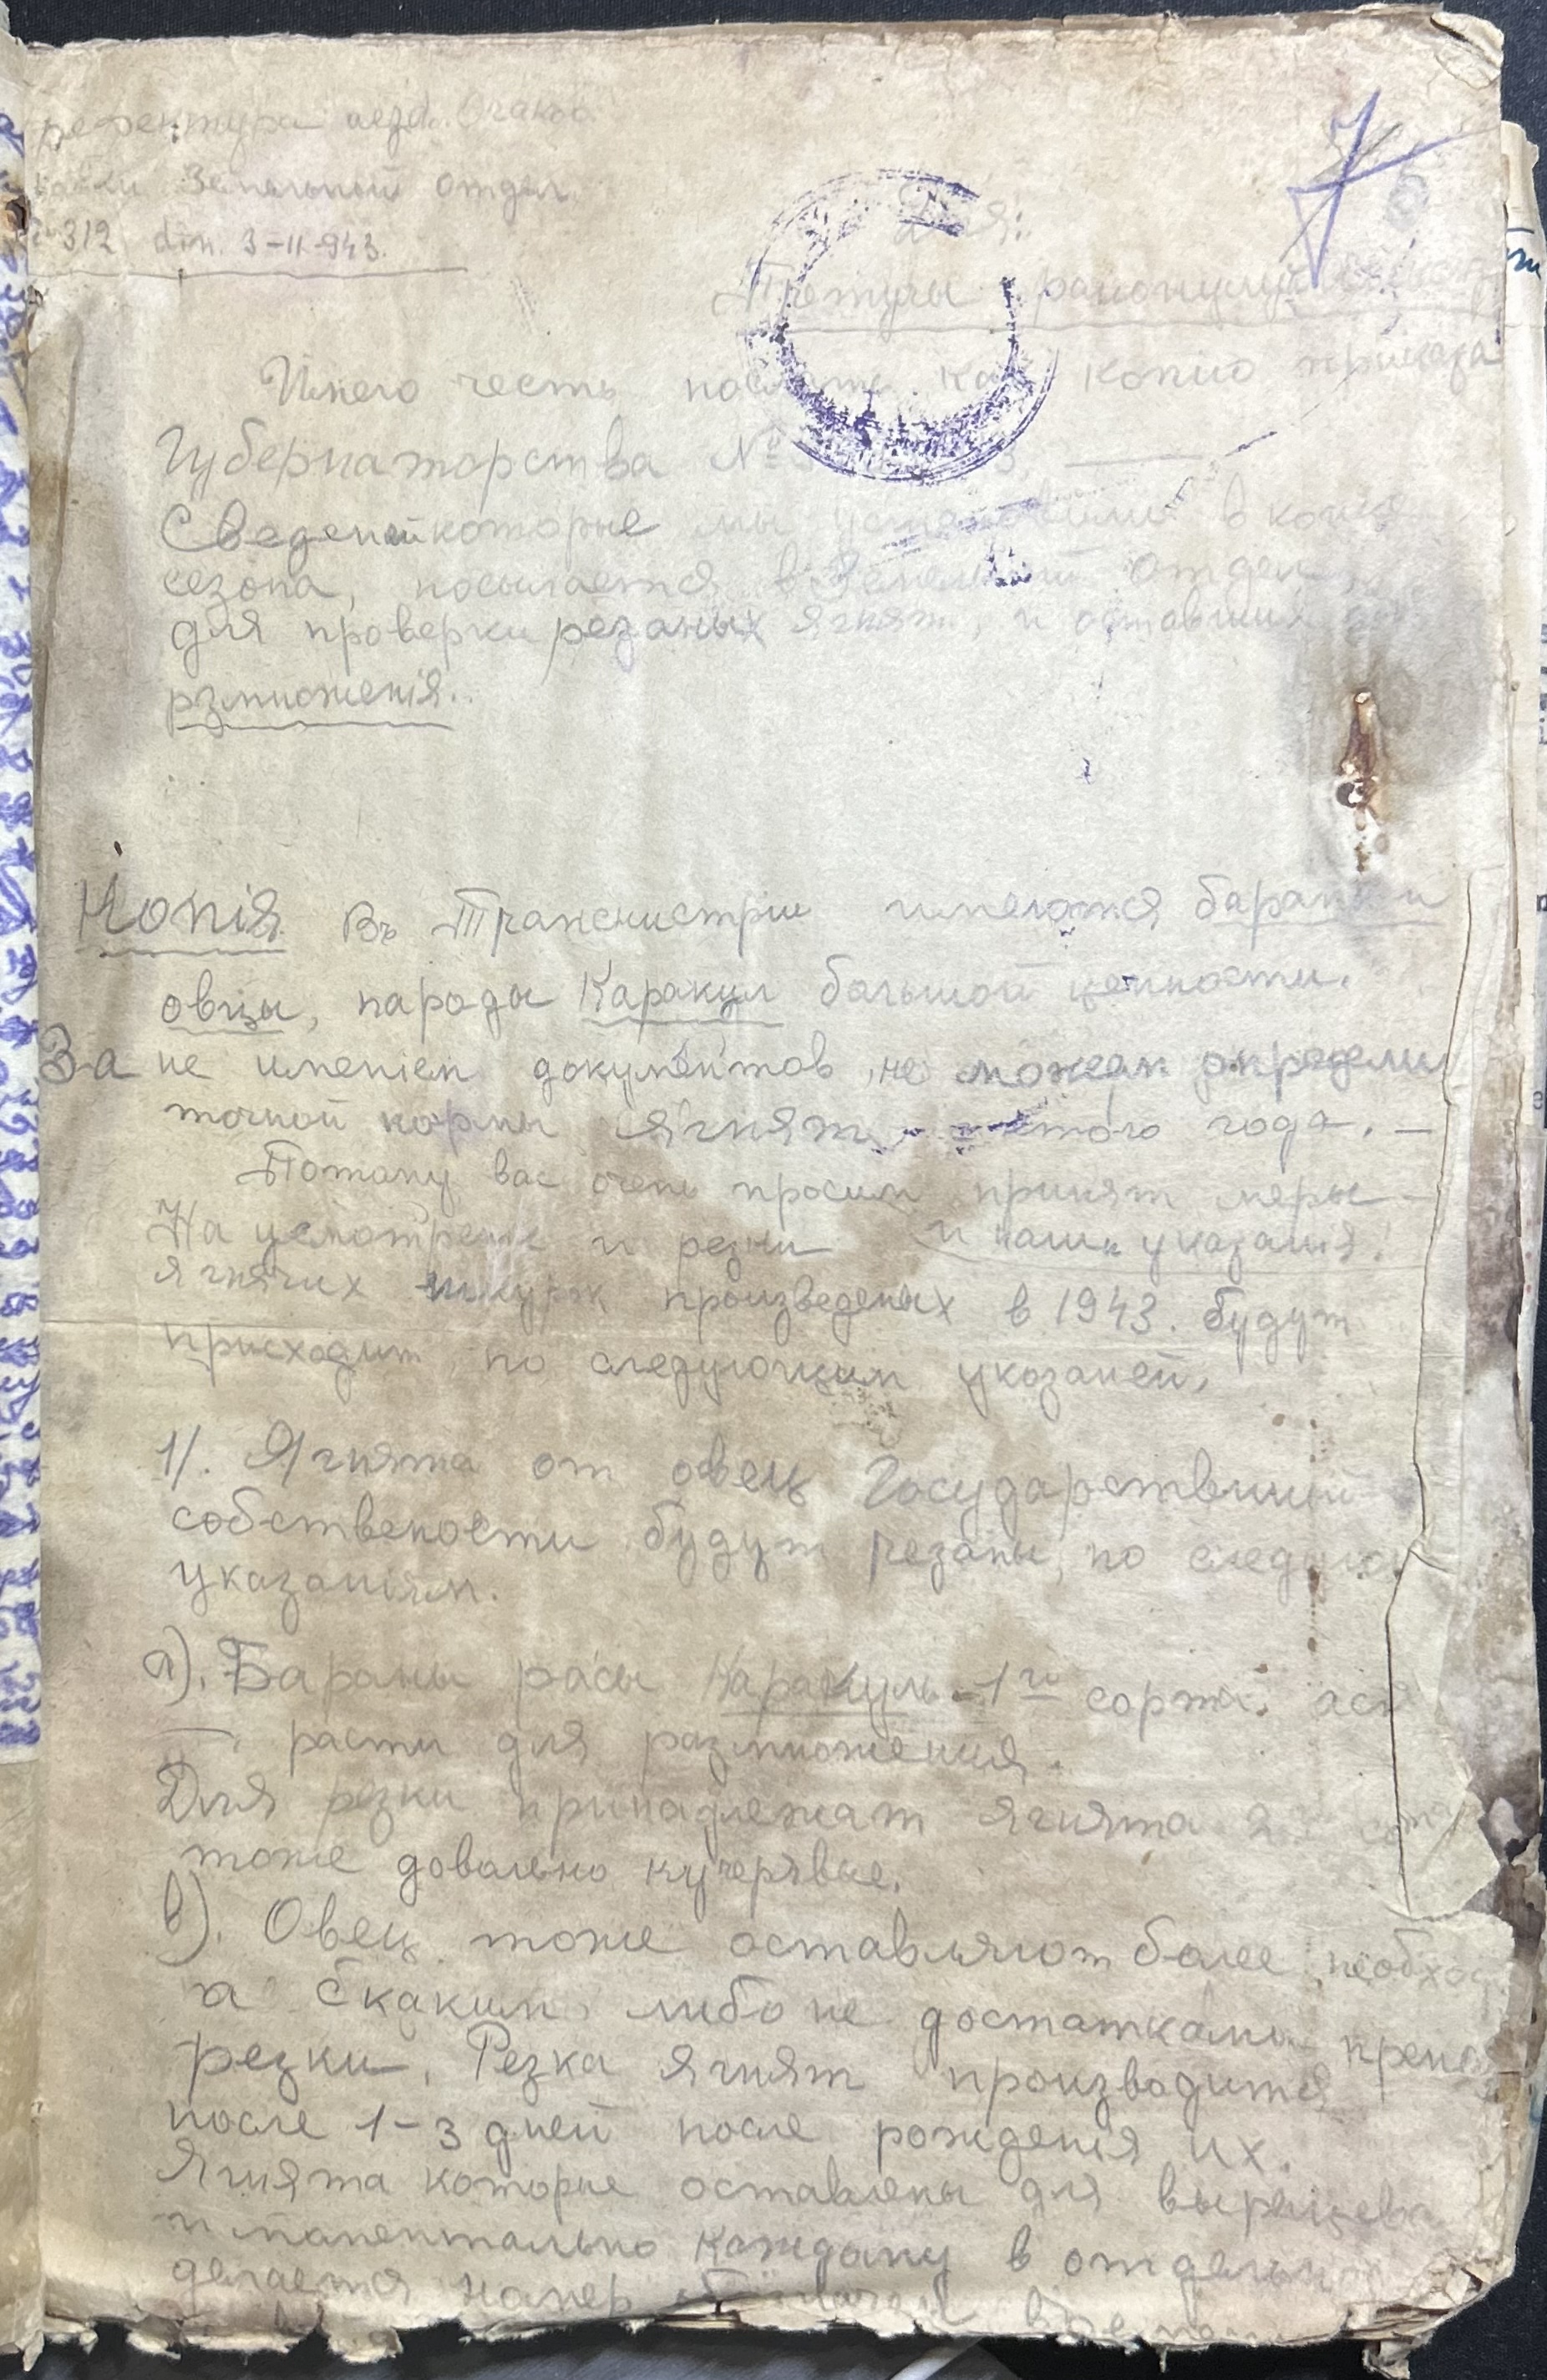 префектура уезд. Очаков
Земельный отдел
№ 312 din. 3-II-943.
Для:
Претуры районулуй
Имею честь послать копию приказа
Губернаторства №
Сведений которые мы установили в конце
сезона, посылается в Земельный отдел
для проверки резаных ягнят, и оставших для
рзмноженія.
Копія. Въ Транснистрии имеются бараны и
овцы, пароды Каракул большой ценности.
За не именіем документов, не можем определи
точной нормы ягнят этого года. —
Потому вас очень просим принят меры —
На усмотрение и резки и наши указанія!
ягнячих шкурок произведеных в 1943. будут
присходит по следующим указаней,
1/. Ягната от овец Государствиний
собствености будут резаны, по следую
указаніям.
а). Бараны расы Каракуль - 1го сорта. ост
расти для размножения.
Для резки принадлежат ягнята 2го
тоже довольно кучерявые.
в). Овец тоже оставляют более необхо
а с каким либо не достатками прена
резки. Резка ягнят производится
после 1-3 дней после рожденія их.
Ягнята которые оставлены для выращев
и каждому в отдельн
делается намер